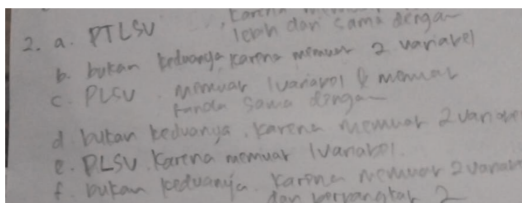 karena
2. a. PTLSV lebih dari sama dengan
b. bukan keduanya karena memuat 2 variavel
c. PLSV memuat 1 variavel & memuat
tanda sama dengan
d bukan keduanya. karena memuat 2 variavel
e. PLSV. Karena memuat 1 variabel.
f. bukan keduanya. Karena memuat 2 variav
dan berpangkat 2